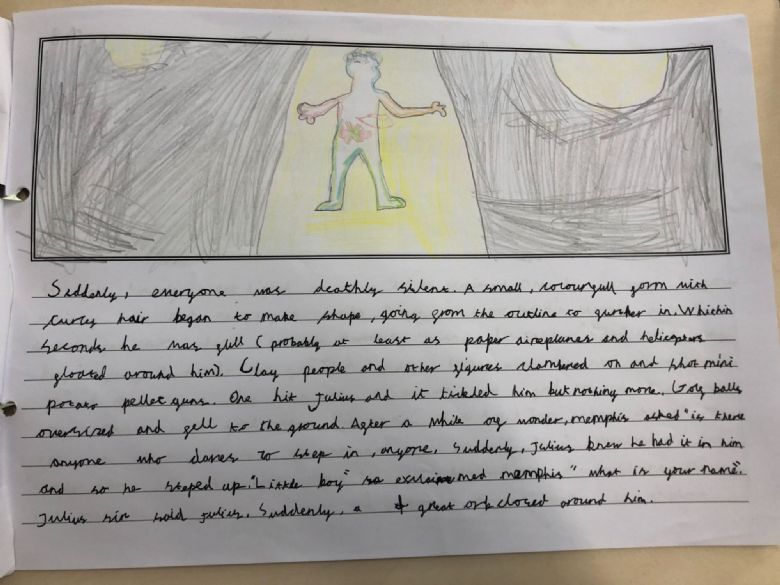 Suddenly, everyone was deathly silent. A small, colourfull form with
curly hair began to make shape, going from the outline to further in. Whithin
seconds he was full (probably at least as paper aireplanes and helicopters
floated around him). Clay people and other figures clambered on and shot mini
potato pellet guns. One hit Julius and it tickled him but nothing more. Golf balls
oversized and fell to the ground. After a while of wonder, memphis asked "is there
anyone who dares to step in, anyone. Suddenly, Julius knew he had it in him
and so he steped up. "Little boy" so exclaimed memphis "what is your name".
Julius sir said julius. Suddenly, a great orb closed around him.